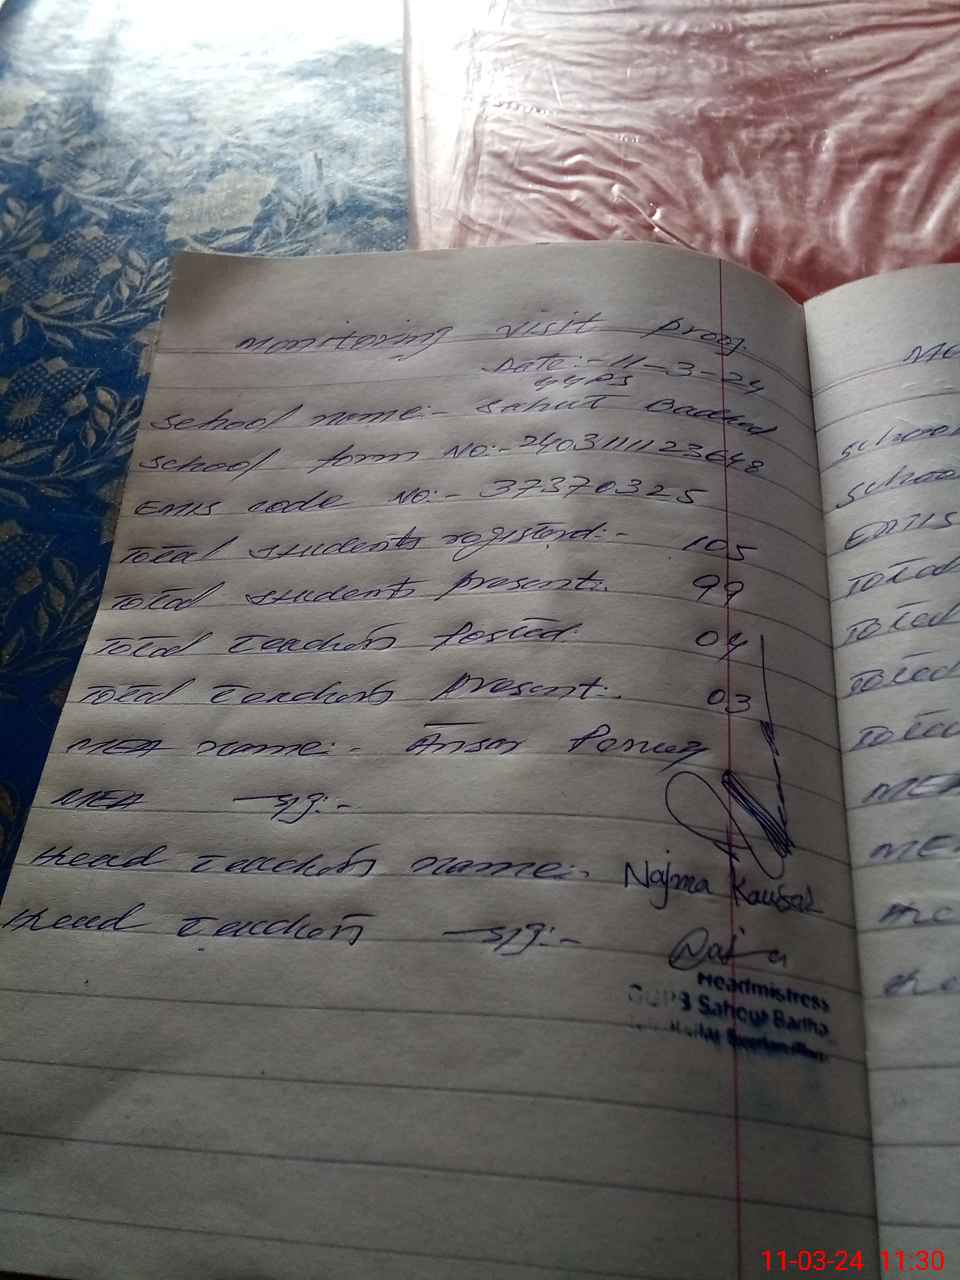 Monitoring visit proof.
Date:- 11-3-24
GGPS
School name:- Sahut Badhal
School form No:- 2403111123648
EMIS code No:- 37370325
Total students registerd:- 105
Total students present:. 99
Total Teachers Posted: 04
Total Teachers present:. 03
MEA name:- Ansar Parvez
MEA sig:-
Head Teachers name:- Najma Kausar
Head Teachers sig:-
Headmistress
GGPS Sahout Badha
ME
School
School
EMIS
Total
Total
Total
Total
MEA
ME
He
He
11-03-24 11:30